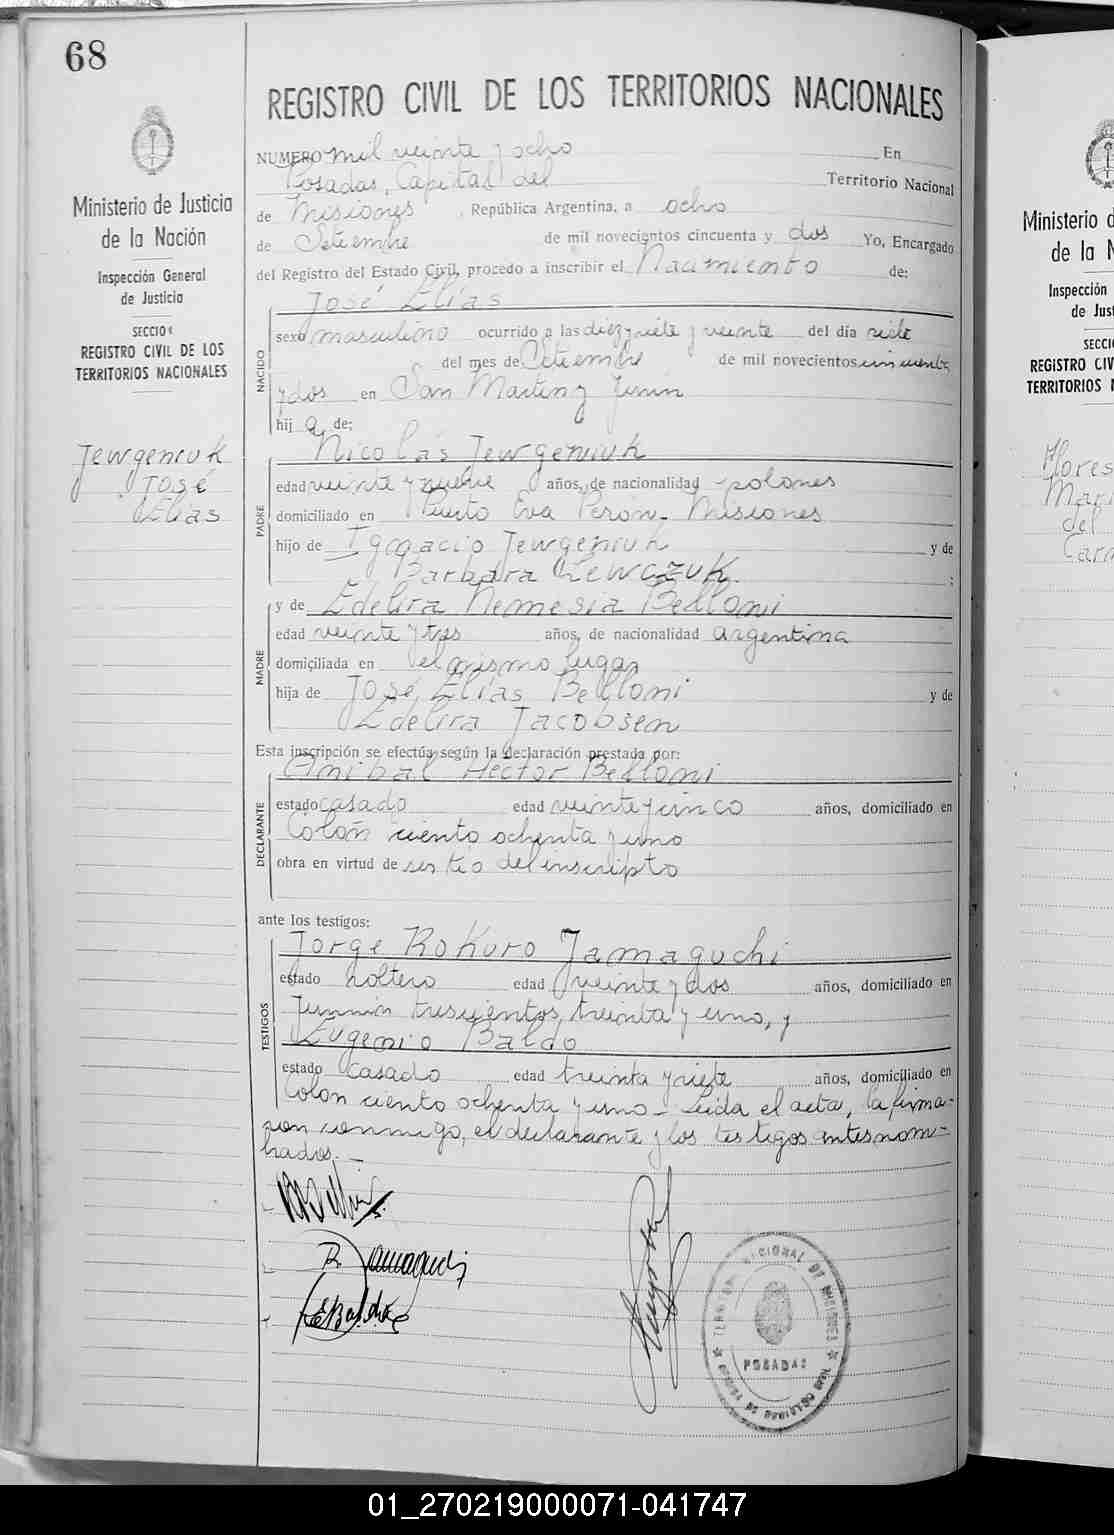 68
REGISTRO CIVIL DE LOS TERRITORIOS NACIONALES
Ministerio de Justicia
de la Nación
Inspección General
de Justicia
SECCION
REGISTRO CIVIL DE LOS
TERRITORIOS NACIONALES
Jewgeniuk
José
Elías
NUMERO mil veinte y ocho En
Posadas, Capital del Territorio Nacional
de Misiones, República Argentina, a ocho
de Setiembre de mil novecientos cincuenta y dos Yo, Encargado
del Registro del Estado Civil, procedo a inscribir el Nacimiento de:
José Elías
NACIDO
sexo masculino ocurrido a las diez y siete y veinte del día siete
del mes de Setiembre de mil novecientos cincuenta
y dos en San Martin y Junin
hij o de:
Nicolás Jewgeniuk
PADRE
edad veinte y nueve años, de nacionalidad polones
domiciliado en Puerto Eva Perón - Misiones
hijo de Ignacio Jewgeniuk y de
Barbara Lewczuk ;
y de Edelira Nemesia Belloni
MADRE
edad veinte y tres años, de nacionalidad argentina
domiciliada en el mismo lugar
hija de José Elías Belloni y de
Edelira Jacobsen
Esta inscripción se efectúa según la declaración prestada por:
Anibal Héctor Belloni
DECLARANTE
estado casado edad veinte y cinco años, domiciliado en
Colón ciento ochenta y uno
obra en virtud de ser tío del inscripto
ante los testigos:
Jorge Rokuro Jamaguchi
TESTIGOS
estado soltero edad veinte y dos años, domiciliado en
Junin trescientos treinta y uno, y
Eugenio Baldo
estado casado edad treinta y siete años, domiciliado en
Colón ciento ochenta y uno - Leida el acta, la firma-
ron conmigo, el declarante y los testigos antes nom-
brados. -
POSADAS
Ministerio d
de la N
Inspección
de Just
SECCI
REGISTRO CIV
TERRITORIOS N
Flores
del
01_270219000071-041747